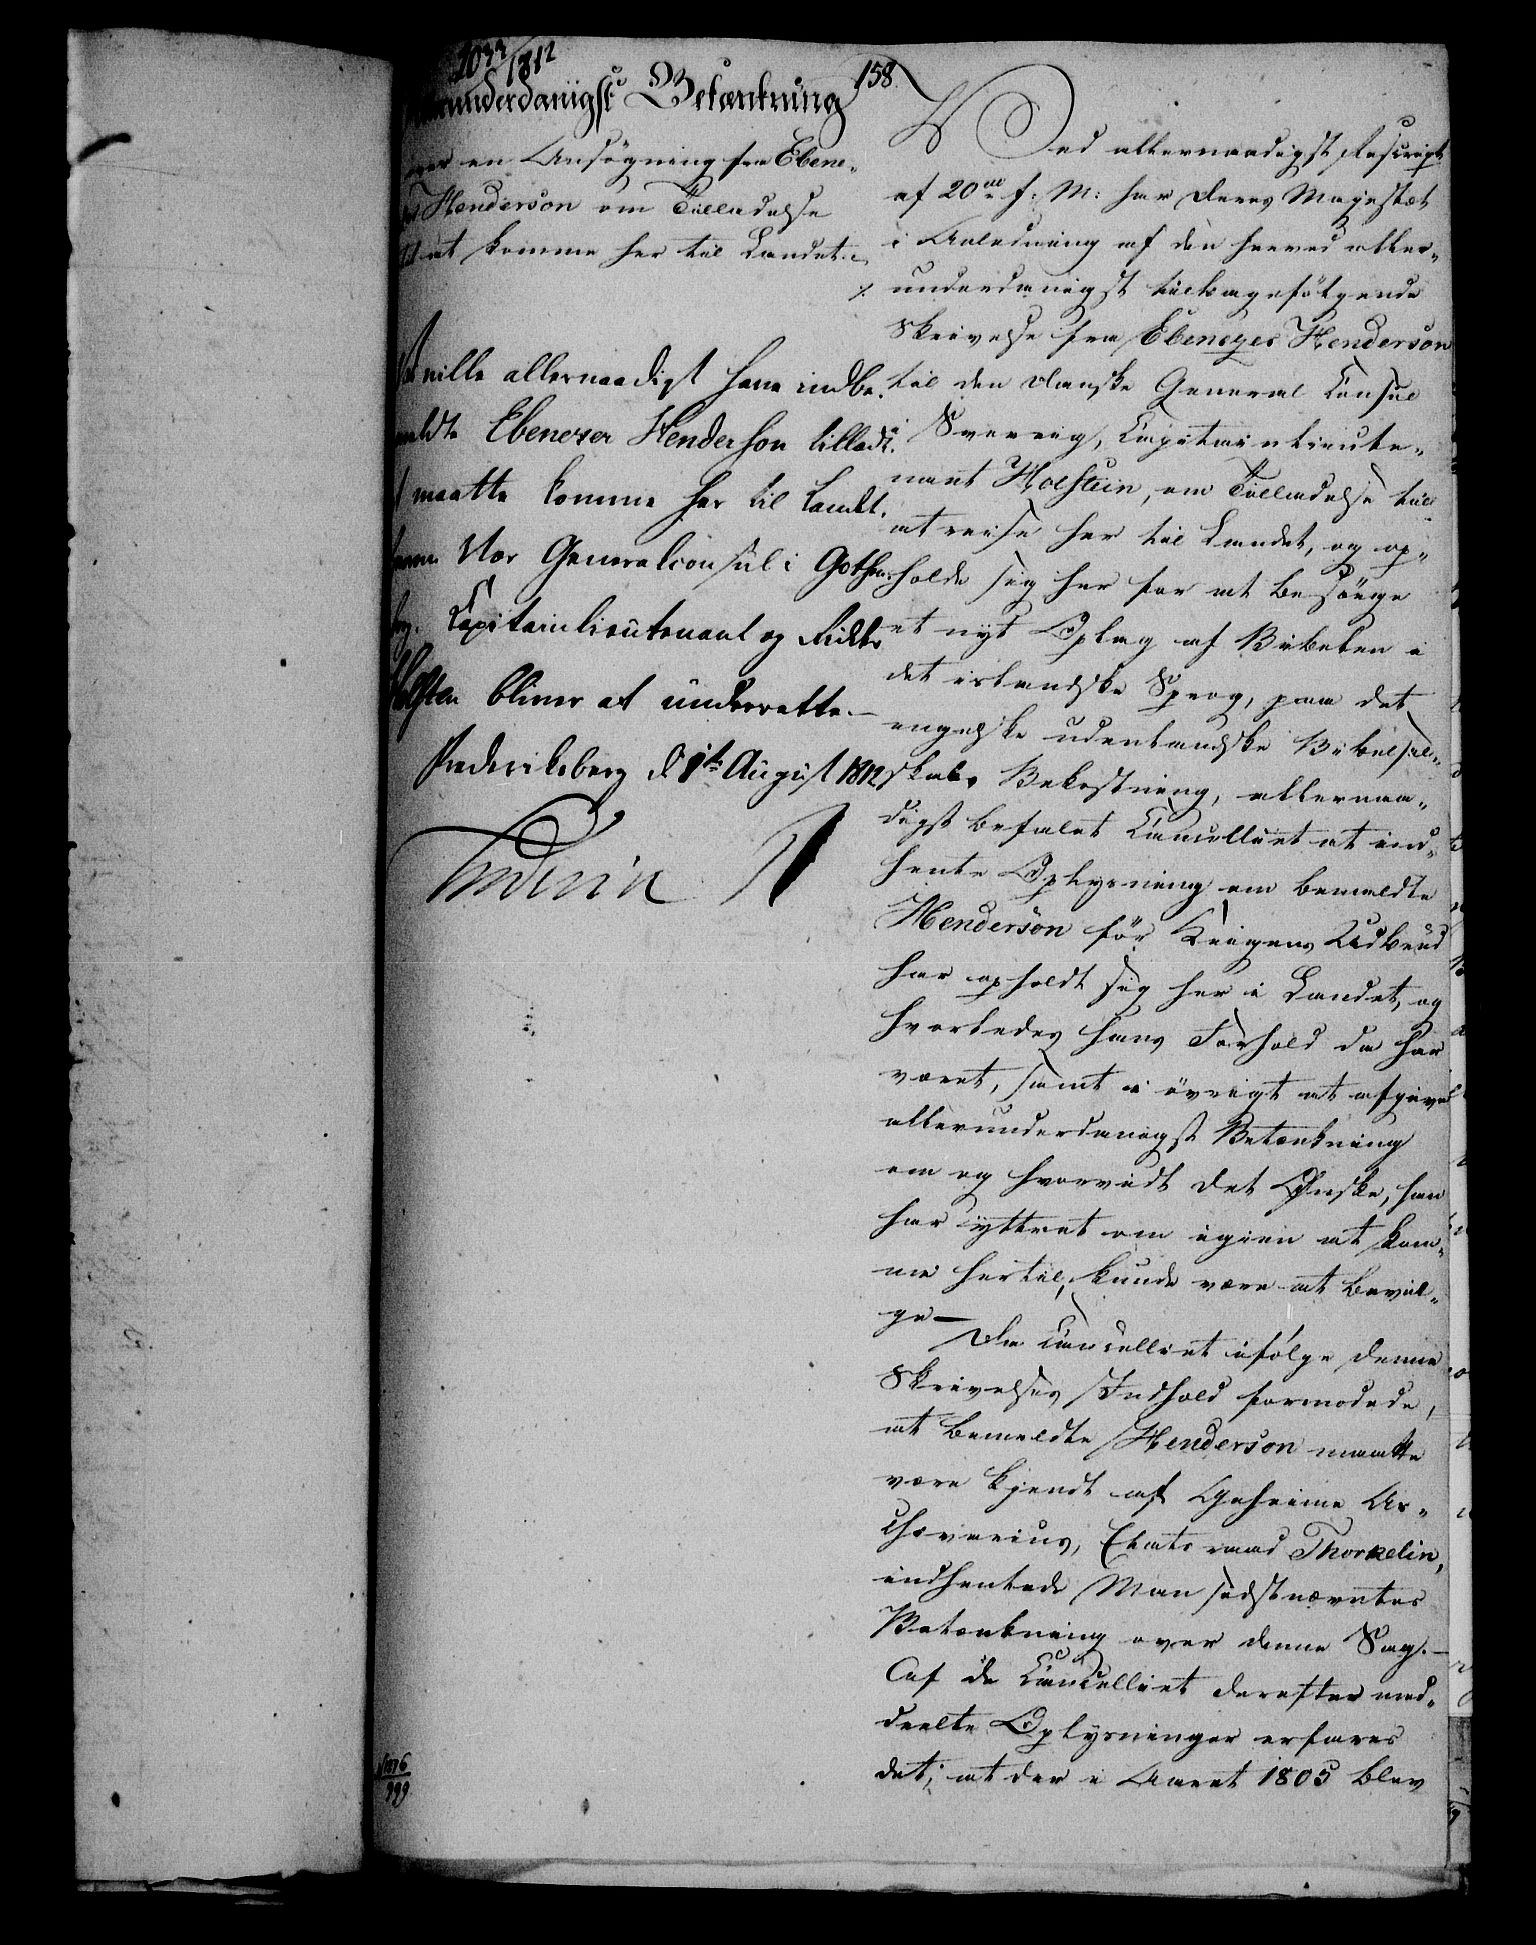 1033/1812
158.
allerunderdanigst Betænkning
over en Ansøgning fra Ebene-
zer Henderson om Tilladelse
til at komme her til Landet.
Vi ville allernaadigst have indbe-
meldte Ebenezer Henderson tilladt,
at maatte komme her til Landet,
hvorom Vor Generalconsul i Gothen-
borg, Capitainlieutenant og Ridder
Holsten bliver at underrette.—
Frederiksberg d. 1ste August 1812
Frederik R
1376/999
Ved allernaadigst Rescript
af 20de f: M: har Deres Majestæt
i Anledning af den herved aller-
underdanigst tilbagefølgende
Skrivelse fra Ebenezer Henderson
til den danske General Consul
i Sverrig, Capitainlieute-
nant Holstein, om Tilladelse til
at reise her til Landet, og op-
holde sig her for at besørge
et nyt Oplag af Bibelen i
det islandske Sprog, paa det
engelske udenlandske Bibelsel-
skabs Bekostning, allernaa-
digst befalet Cancelliet at ind-
hente Oplysning om bemeldte
Henderson før Krigens Udbrud
har opholdt sig her i Landet, og
hvorledes hans Forhold da har
været, samt i øvrigt at afgive
allerunderdanigst Betænkning
om og hvorvidt det Ønske, han
har yttret om igien at kom-
me hertil, kunde være at bevil-
ge—
Da Cancelliet ifølge denne
Skrivelses Indhold formodede,
at bemeldte Henderson maatte
være kjendt af Geheime Ar-
chivarius, Etatsraad Thorkelin,
indhentede Man sidstnævntes
Betænkning over denne Sag.—
Af de Cancelliet derefter med-
deelte Oplysninger erfares
det, at der i Aaret 1805 blev